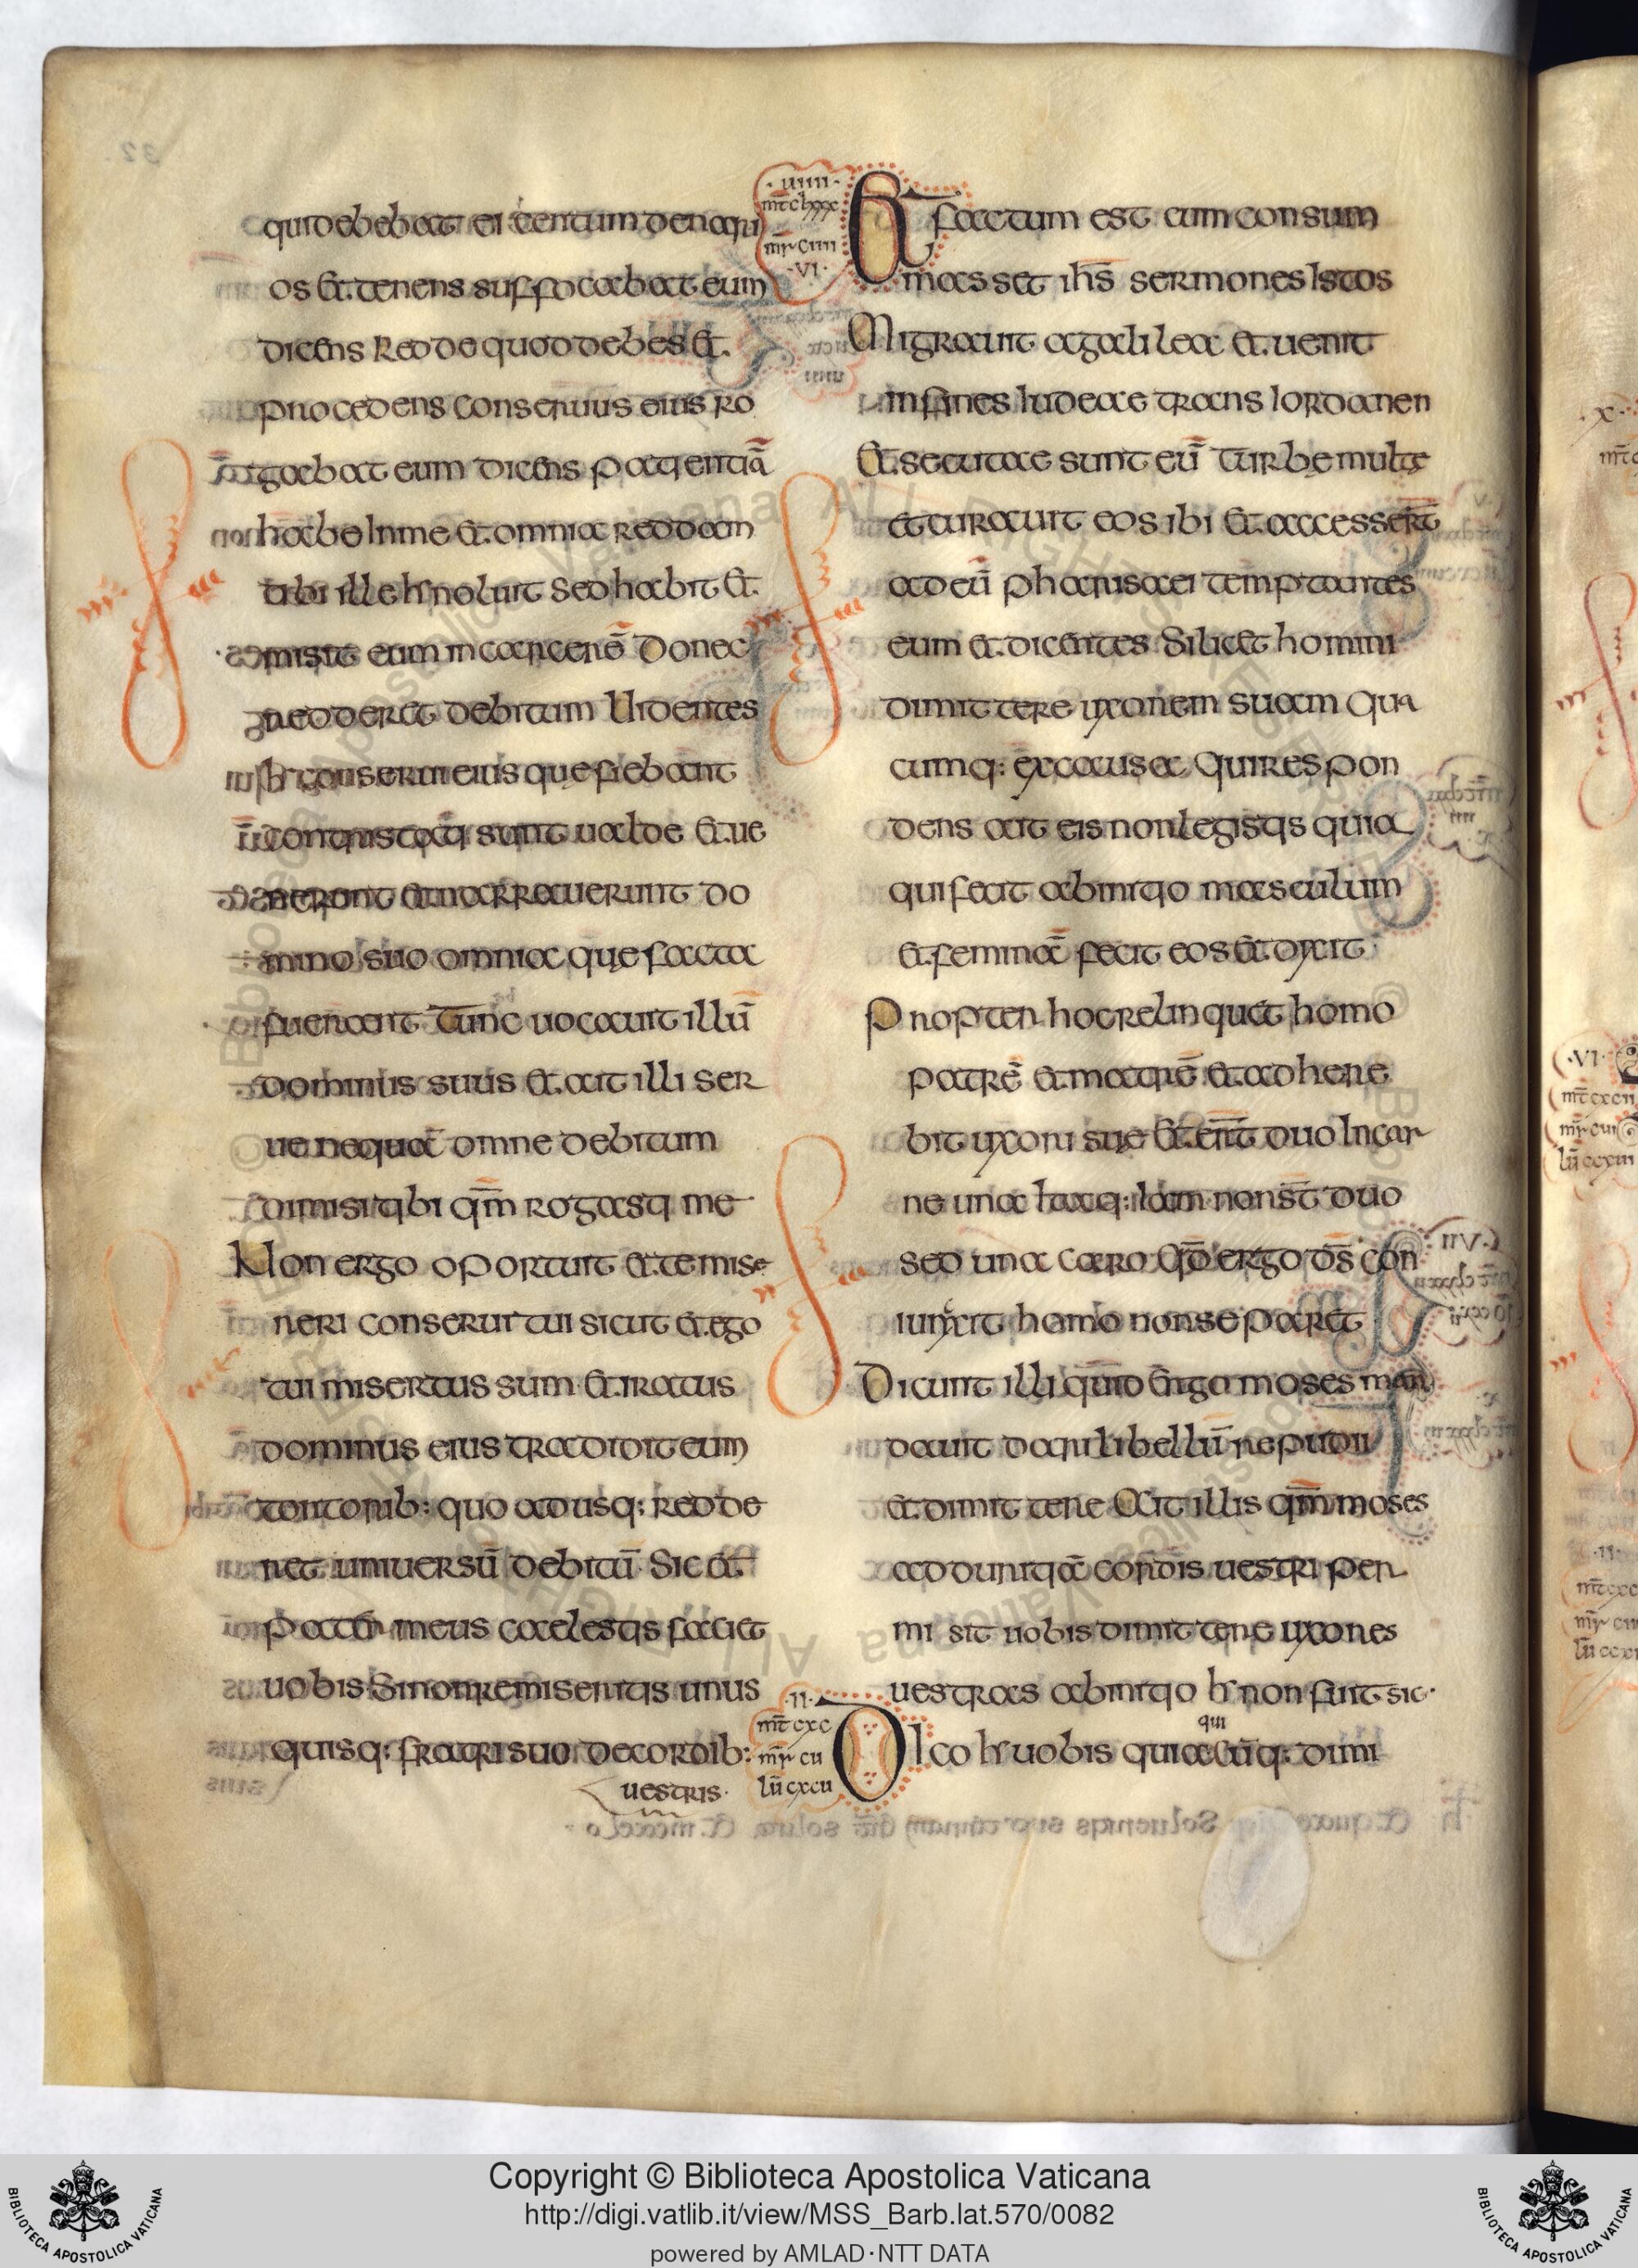 qui debebat ei centum denari
os et tenens suffocabat eum
dicens Redde quod debes et
procedens conseruus eius ro
gabat eum dicens patientiā
habe In me et omnia reddam
tibi ille ħ noluit sed habiit et
misit eum in carcerē Donec
redderet debitum Uidentes
ħ conserui eius que fiebant
contristati sunt ualde et ue
nerunt et narrauerunt do
mino suo omnia que facta
fuerant Tunc uocauit illū
dominus suus et ait illi ser
ue nequā omne debitum
dimisi tibi qm̄ rogasti me
Non ergo oportuit et te mise
reri conserui tui sicut et ego
tui misertus sum et iratus
dominus eius tradidit eum
tortorib: quo adusq: redde
ret uniuersū debitū Sic et
pater meus caelestis faciet
uobis Si non remiseritis unus
quisq: fratri suo de cordib:
uestris
·uiiii·
mt̄ clxxx
mr̄ ciii
·VI·
Et factum est cum consum
masset ihs̄ sermones Istos
Migrauit a galilea et uenit
in fines Iudeae trans Iordanen
Et secutae sunt eū Turbe multe
et curauit eos ibi et accessert̄
ad eū pharisaei temptantes
eum et dicentes Si licet homini
dimittere uxorem suam Qua
cumq: ex causa Qui respon
dens ait eis non legistis quia
qui fecit ab initio masculum
et feminā fecit eos et dixit
Propter hoc relinquet homo
patrē et matrē et adhere
bit uxori sue Et ert̄ duo In car
ne una Itaq: Iam non st̄ duo
sed una caro Qd̄ ergo ds̄ con
iunxit homo non separet
Dicunt illi quid Ergo moses man
dauit dari libellū repudii
et dimittere Ait illis qm̄ moses
ad duritiā cordis uestri per
misit uobis dimittere uxores
uestras ab initio ħ non fuit sic·
·II·
mt̄ cxc
mr̄ cu
lū cxcu
DIco ħ uobis quia cūq: dimi
qui
Copyright © Biblioteca Apostolica Vaticana
http://digi.vatlib.it/view/MSS_Barb.lat.570/0082
powered by AMLAD·NTT DATA
BIBLIOTECA APOSTOLICA VATICANA
BIBLIOTECA APOSTOLICA VATICANA